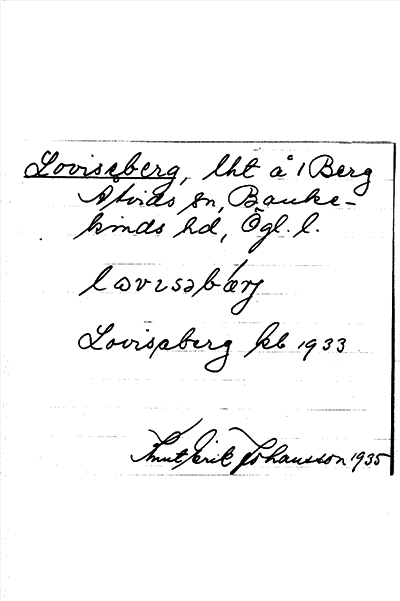 Lovisaberg, lht å 1 Berg
Atvids sn, Banke-
kinds hd, Ögl. l.
lovɩsabærj
Lovisaberg kb 1933
Knut Erik Johansson 1935